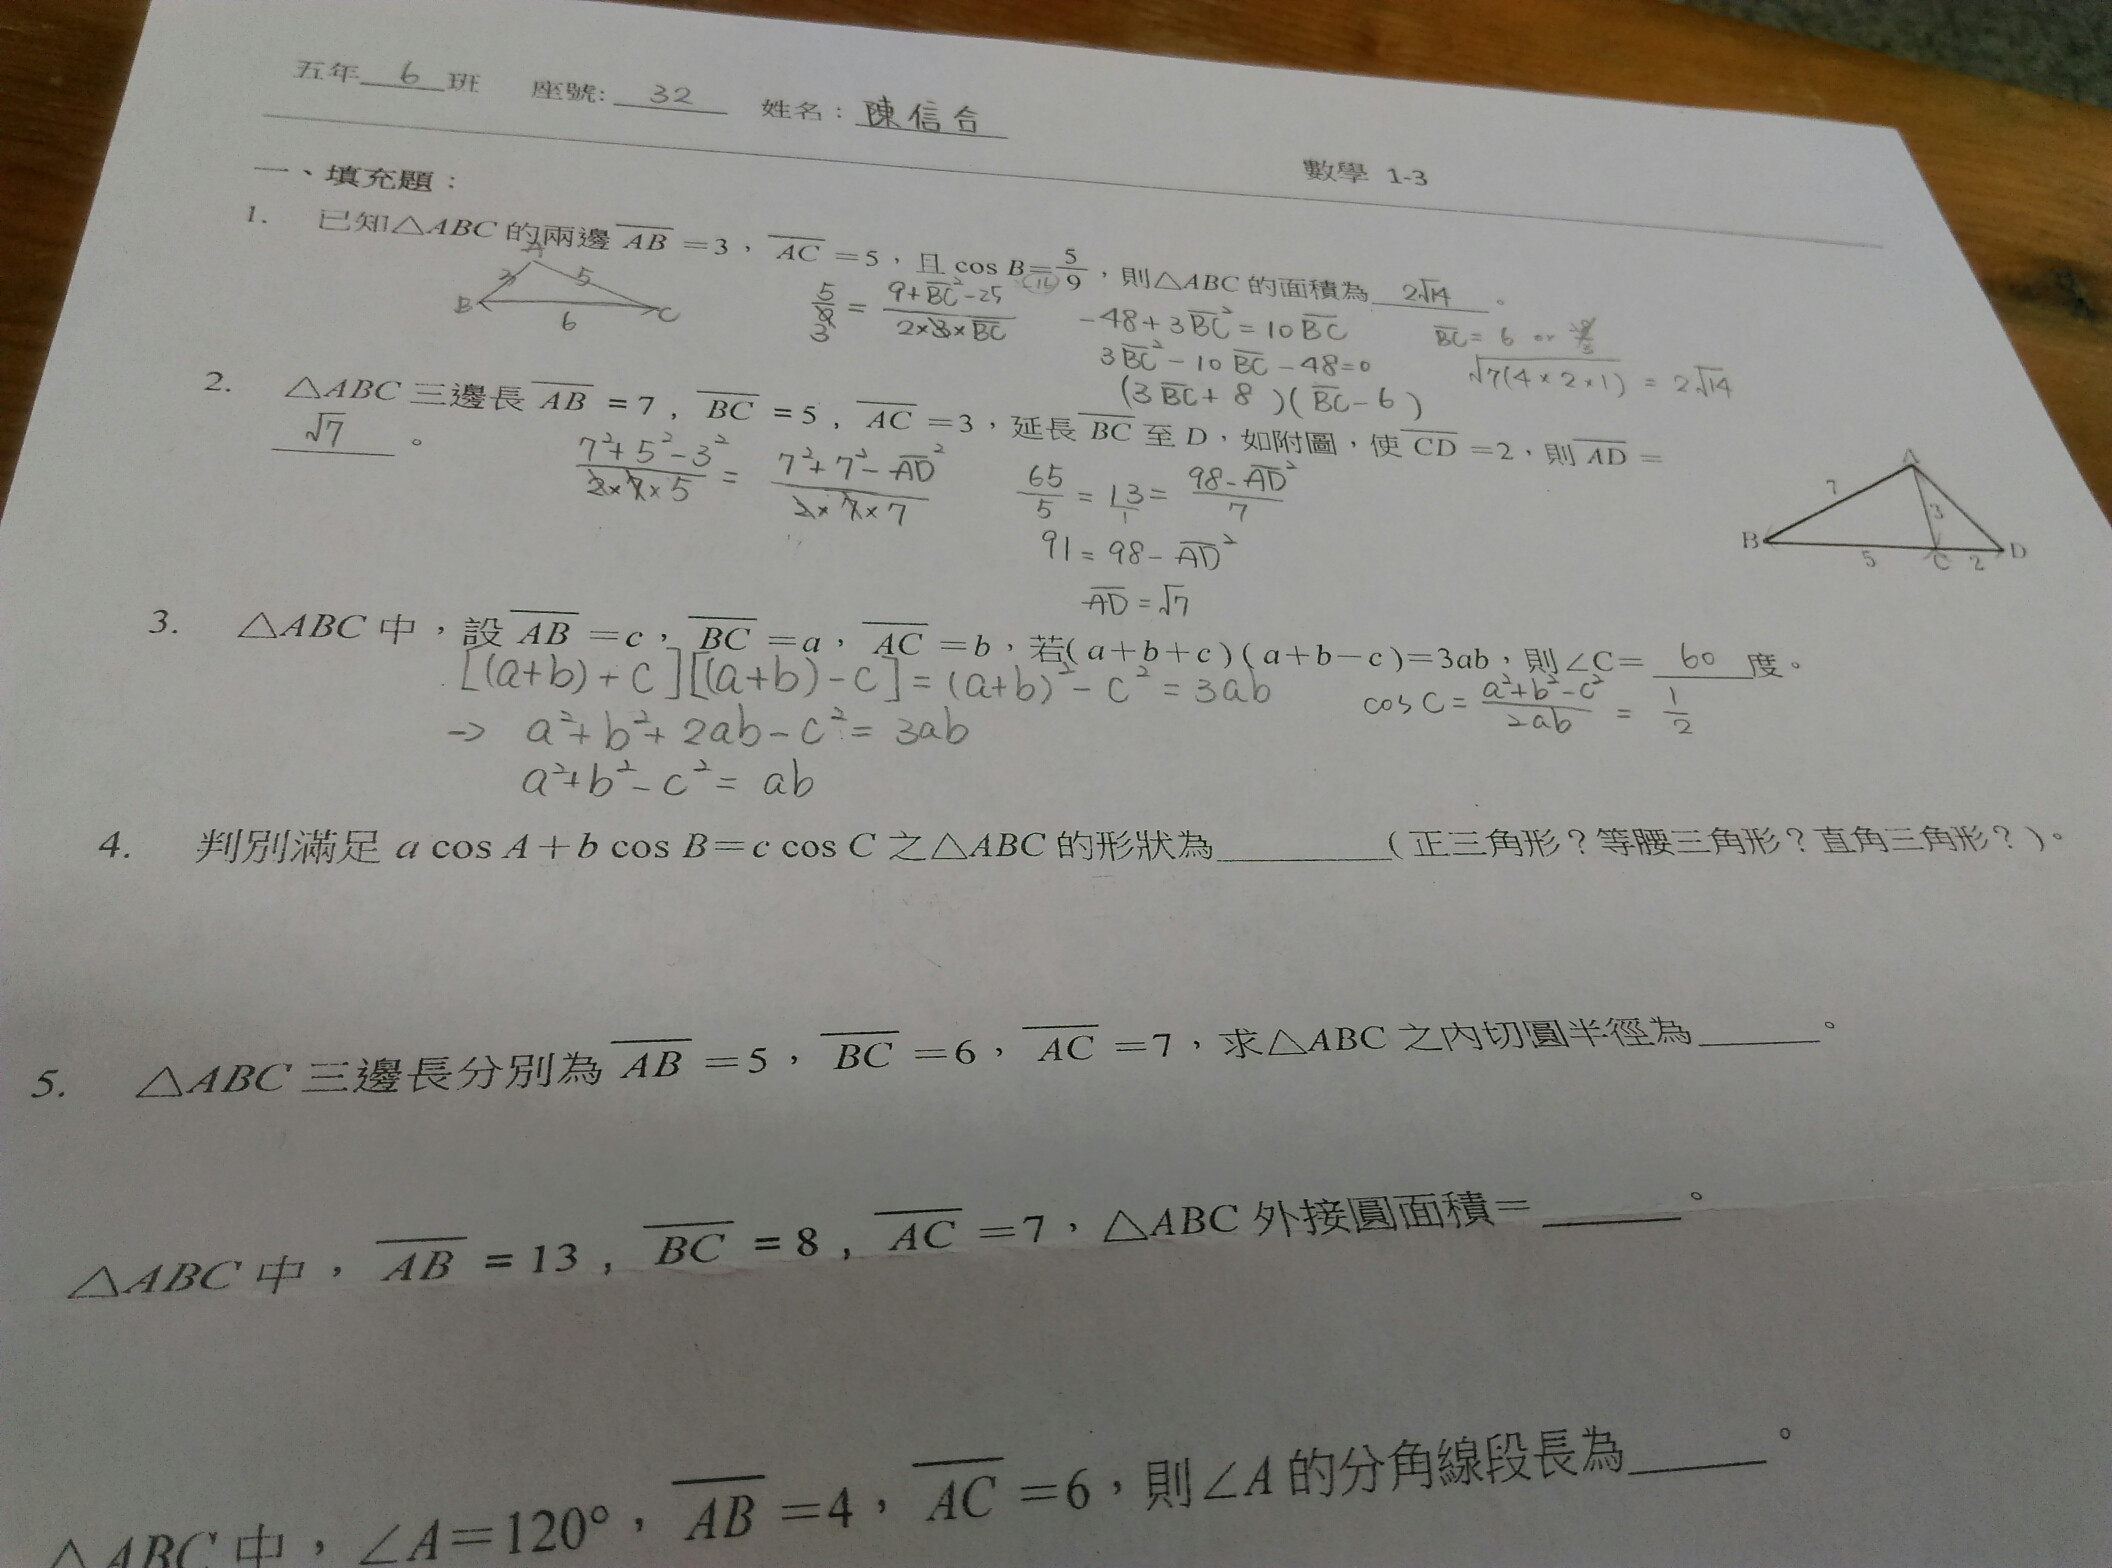 五年 6 班 座號: 32 姓名：陳信合
數學 1-3
一、填充題：
1. 已知△ABC 的兩邊 AB =3，AC =5，且 cos B= 5/9，則△ABC 的面積為 2√14 。
A
3 5
B 6 C
5/9 = (9+BC²-25)/(2×3×BC)
3
(-16)
-48+3BC² = 10BC
3BC² - 10BC - 48=0
(3BC+8)(BC-6)
BC = 6 or
√7(4×2×1) = 2√14
2. △ABC 三邊長 AB = 7 , BC = 5 , AC = 3，延長 BC 至 D，如附圖，使 CD =2，則 AD =
√7 。
(7²+5²-3²)/(2×7×5) = (7²+7²-AD²)/(2×7×7)
65/5 = 13/1 = (98-AD²)/7
91 = 98 - AD²
AD = √7
A
7 3
B 5 C 2 D
3. △ABC 中，設 AB =c，BC =a，AC =b，若( a+b+c ) ( a+b−c )=3ab，則∠C= 60 度。
[(a+b)+c][(a+b)-c] = (a+b)²-c² = 3ab
cosC = (a²+b²-c²)/2ab = 1/2
→ a²+b²+2ab-c² = 3ab
a²+b²-c² = ab
4. 判別滿足 a cos A+b cos B=c cos C 之△ABC 的形狀為________( 正三角形？等腰三角形？直角三角形？)。
5. △ABC 三邊長分別為 AB =5，BC =6，AC =7，求△ABC 之內切圓半徑為______。
△ABC 中，AB = 13 , BC = 8 , AC =7，△ABC 外接圓面積=______。
△ABC 中，∠A=120°，AB =4，AC =6，則∠A 的分角線段長為______。